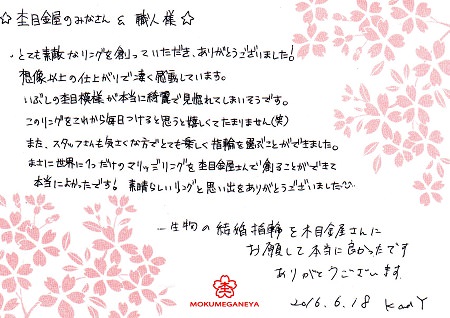 ☆ 杢目金屋のみなさん & 職人様 ☆
・とても素敵なリングを創っていただき、ありがとうございました！
想像以上の仕上がりで凄く感動しています。
いぶしの杢目模様が本当に綺麗で見惚れてしまいそうです。
このリングをこれから毎日つけると思うと嬉しくてたまりません(笑)
また、スタッフさんも気さくな方でとても楽しく指輪を選ぶことができました。
まさに世界に1つだけのマリッジリングを杢目金屋さんで創ることができて
本当によかったです！ 素晴らしいリングと思い出をありがとうございました
一生物の結婚指輪を木目金屋さんに
お願いして本当に良かったです
ありがとうございます。
2016.6.18
MOKUMEGANEYA